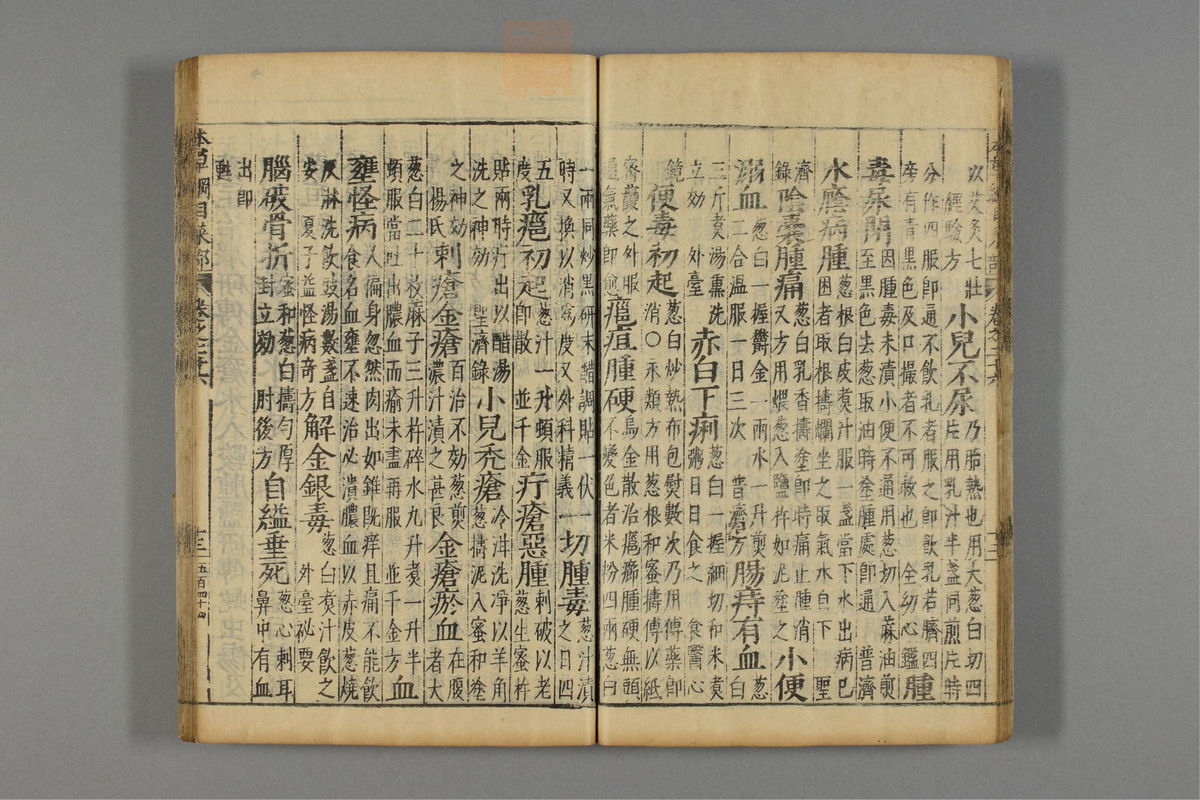 以艾灸七壯經驗方 小兒不尿 乃胎熱也用大葱白切四片用乳汁半盞同煎片時
分作四服即通不飲乳者服之即飲乳若臍四旁有青黑色及口撮者不可救也 全幼心鑑 腫
毒尿閉 因腫毒未潰小便不通用葱切入麻油煎至黑色去葱取油時塗腫處即通 普濟
水癊病腫 葱根白皮煮汁服一盞當下水出病已困者取根擣爛坐之取氣水自下 聖
濟錄 陰囊腫痛 葱白乳香擣塗即時痛止腫消又方用煨葱入鹽杵如泥塗之 小便
溺血 葱白一握鬱金一兩水一升煎二合温服一日三次 普濟方 腸痔有血 葱白
三斤煮湯熏洗立効 外臺 赤白下痢 葱白一握細切和米煮粥日日食之 食醫心
鏡 便毒初起 葱白炒熱布包熨數次乃用傅藥即消○永類方用葱根和蜜擣傅以紙
密護之外服通氣藥即愈 㿈疽腫硬 烏金散治㿈癤腫硬無頭不變色者米粉四兩葱白
一兩同炒黑研末醋調貼一伏時又換以消為度 又外科精義 一切腫毒 葱汁漬之日四
五度 乳㿈初起 葱汁一升頓服即散 並千金 疔瘡惡腫 刺破以老葱生蜜杵
貼兩時疔出以醋湯洗之神効 聖濟錄 小兒禿瘡 冷泔洗淨以羊角葱擣泥入蜜和塗
之神効 楊氏 刺瘡金瘡 百治不効葱煎濃汁漬之甚良 金瘡瘀血 在腹者大
葱白二十枚麻子三升杵碎水九升煮一升半頓服當吐出膿血而瘉未盡再服 並千金方 血
壅怪病 人徧身忽然肉出如錐既痒且痛不能飲食名血壅不速治必潰膿血以赤皮葱燒
灰淋洗飲豉湯數盞自安 夏子益怪病奇方 解金銀毒 葱白煮汁飲之 外臺秘要
腦破骨折 蜜和葱白擣匀厚封立効 肘後方 自縊垂死 葱心刺耳鼻中有血
出即甦
本草綱目菜部 卷之二十六 十二 五百四十四